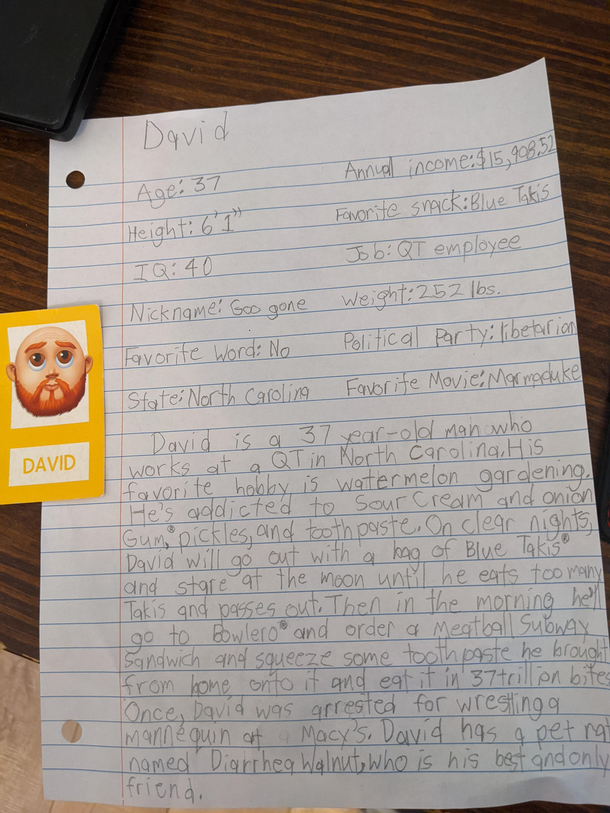 David
Age: 37
Annual income: $15,908.52
Height: 6'1"
Favorite snack: Blue Takis
IQ: 40
Job: QT employee
Nickname: Goo gone
Weight: 252 lbs.
Favorite Word: No
Political Party: libetarian
State: North Carolina
Favorite Movie: Marmaduke
David is a 37 year-old man who
works at a QT in North Carolina. His
favorite hobby is watermelon gardening.
He's addicted to Sour Cream and onion
Gum,® pickles, and toothpaste. On clear nights,
David will go out with a bag of Blue Takis®
and stare at the moon until he eats too many
Takis and passes out. Then in the morning he'll
go to Bowlero® and order a Meatball Subway
Sandwich and squeeze some toothpaste he brought
from home onto it and eat it in 37 trillion bites.
Once, David was arrested for wrestling a
mannequin at a Macy's. David has a pet rat
named Diarrhea Walnut, who is his best and only
friend.
DAVID